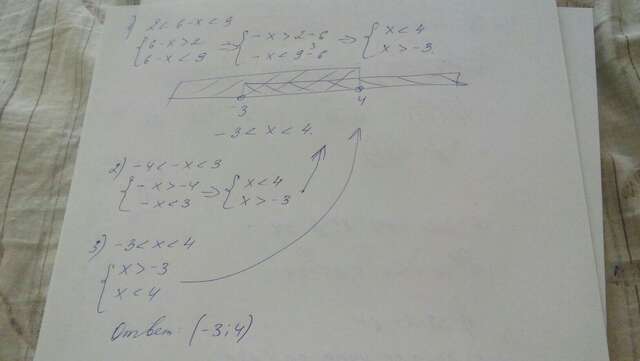 1) 2 < 6 - x < 9
{ 6 - x > 2 ⇒ { - x > 2 - 6 ⇒ { x < 4
{ 6 - x < 9 { - x < 9 - 6 { x > -3.
3
-3 4
-3 < x < 4.
2) -4 < -x < 3
{ -x > -4 ⇒ { x < 4
{ -x < 3 { x > -3
3) -3 < x < 4
{ x > -3
{ x < 4
Ответ: (-3; 4)